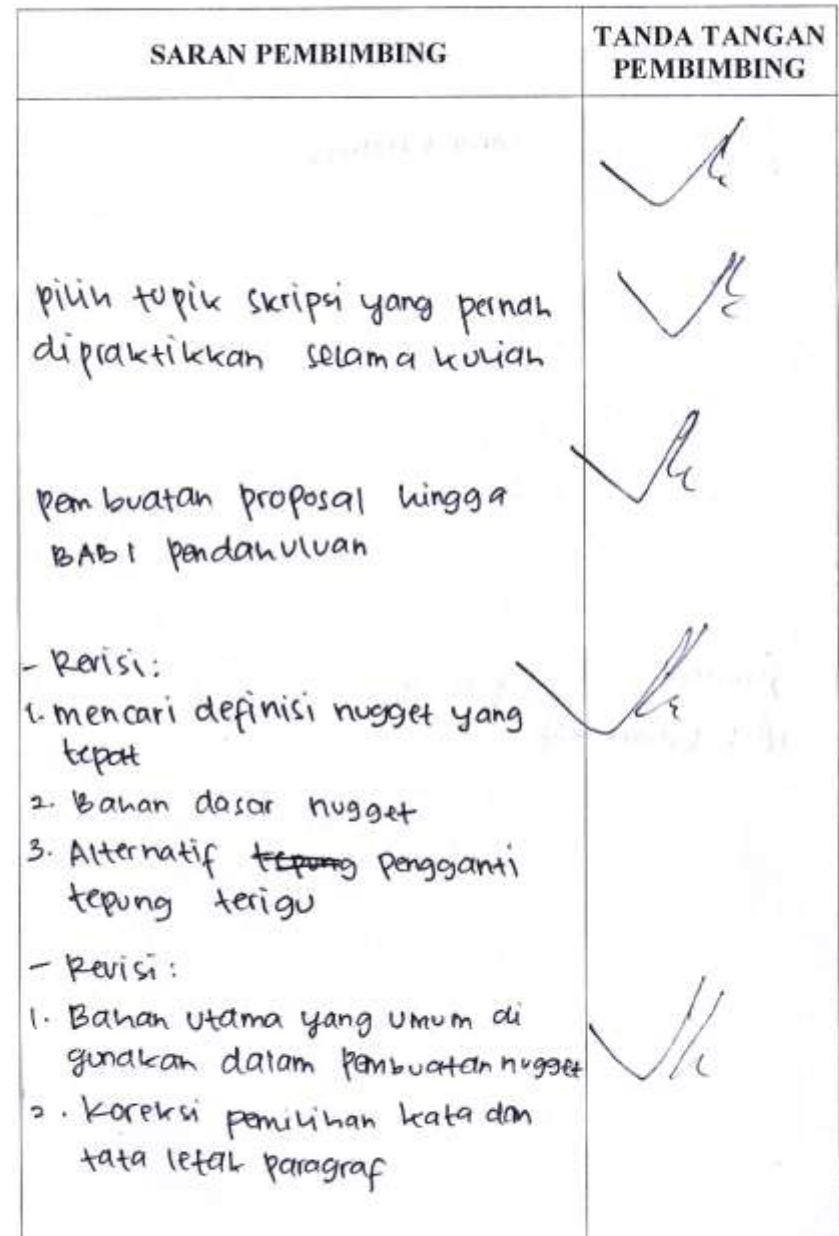 SARAN PEMBIMBING
TANDA TANGAN
PEMBIMBING
pilih topik skripsi yang pernah
dipraktikkan selama kuliah
pembuatan proposal hingga
BAB I pendahuluan
- Revisi:
1. mencari definisi nugget yang
tepat
2. Bahan dasar nugget
3. Alternatif tepung pengganti
tepung terigu
- Revisi:
1. Bahan utama yang umum di
gunakan dalam pembuatan nugget
2. Koreksi pemilihan kata dan
tata letak paragraf